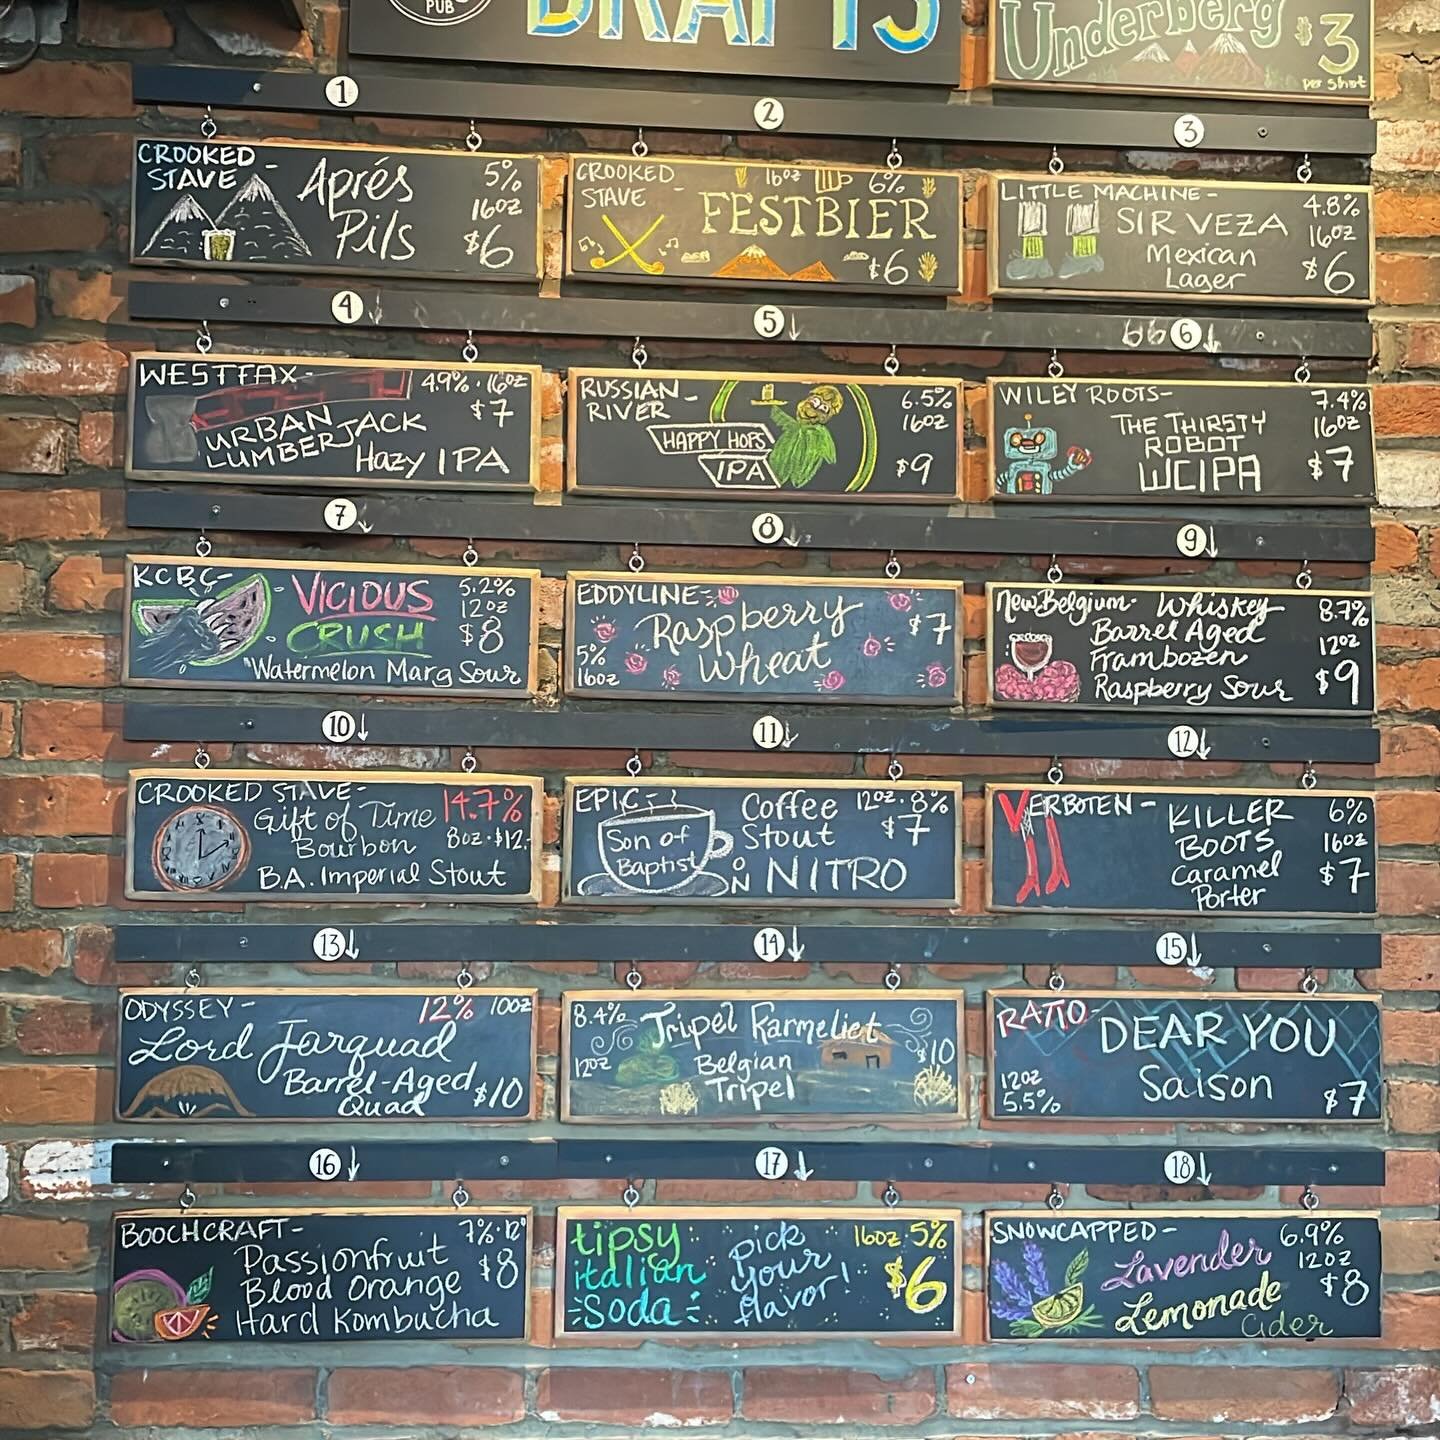 PUB
DRAFTS
Underberg $3
per shot
1
2
3
CROOKED STAVE - Aprés Pils
5%
16oz
$6
CROOKED STAVE -
16oz 6%
FESTBIER
$6
LITTLE MACHINE -
SIR VEZA
Mexican
Lager
4.8%
16oz
$6
4
5
6
WESTFAX -
4.9% · 16oz
$7
URBAN
LUMBERJACK
Hazy IPA
RUSSIAN
RIVER -
HAPPY HOPS
IPA
6.5%
16oz
$9
WILEY ROOTS -
THE THIRSTY
ROBOT
WCIPA
7.4%
16oz
$7
7
8
9
KCBC -
VICIOUS
CRUSH
5.2%
12oz
$8
"Watermelon Marg Sour
EDDYLINE -
Raspberry
Wheat
$7
5%
16oz
New Belgium - Whiskey
Barrel Aged
Frambozen
Raspberry Sour
8.7%
12oz
$9
10
11
12
CROOKED STAVE -
Gift of Time
Bourbon
B.A. Imperial Stout
14.7%
8oz · $12
EPIC -
Son of
Baptist
Coffee
Stout
ON NITRO
12oz · 8%
$7
VERBOTEN -
KILLER
BOOTS
Caramel
Porter
6%
16oz
$7
13
14
15
ODYSSEY -
12% 10oz
Lord Farquaad
Barrel-Aged
Quad
$10
8.4%
12oz
Tripel Karmeliet
Belgian
Tripel
$10
RATIO -
DEAR YOU
Saison
12oz
5.5%
$7
16
17
18
BOOCHCRAFT -
7% · 12°
$8
Passionfruit
Blood Orange
Hard Kombucha
tipsy
italian
soda
pick
your
flavor!
16oz · 5%
$6
SNOWCAPPED -
Lavender
Lemonade
Cider
6.9%
12oz
$8